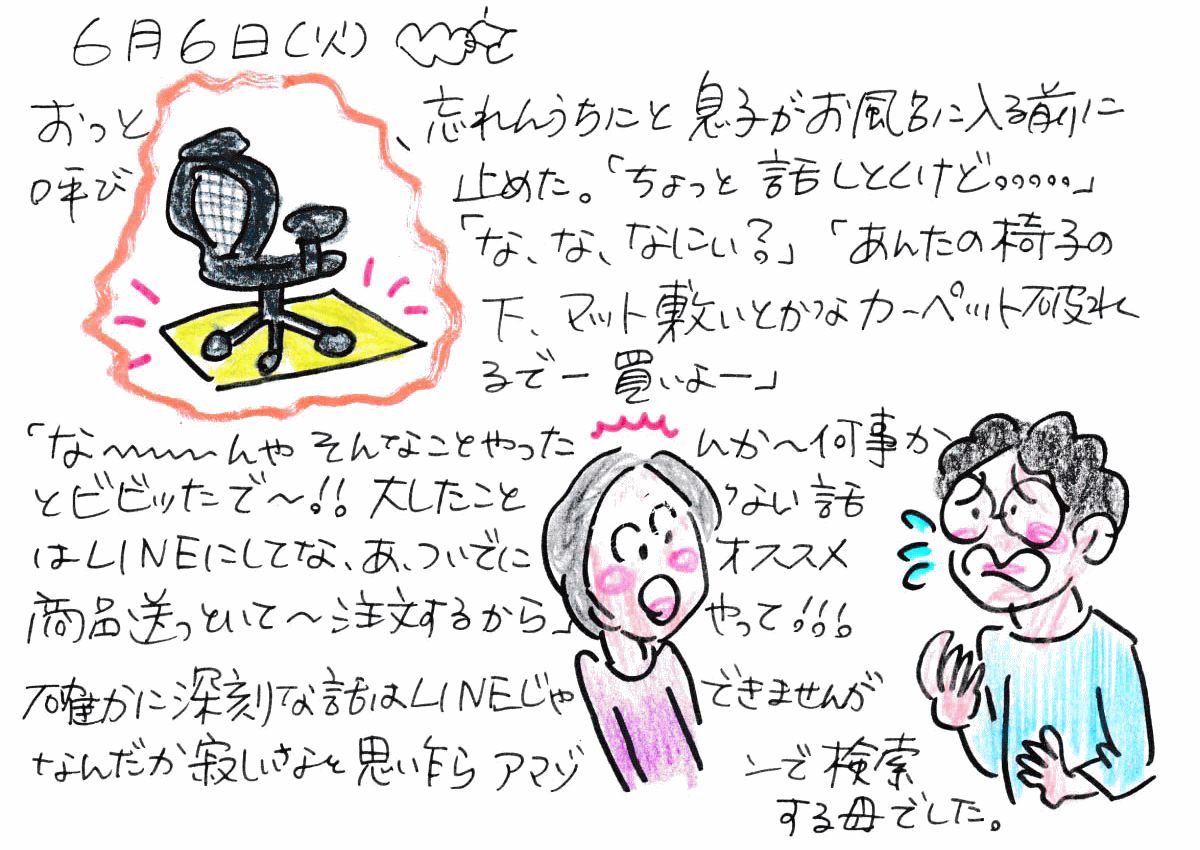 6月6日(火)
おっと、忘れんうちにと息子がお風呂に入る前に
呼び止めた。「ちょっと話しとくけど。。。。。」
「な、な、なにぃ？」「あんたの椅子の
下、マット敷いとかなカーペット破れ
るでー買いよー」
「な〜〜〜〜んや そんなことやったんか〜何事か
とビビッたで〜!! 大したことない話
はLINEにしてな、あ、ついでにオススメ
商品送っといて〜注文するから」やって!!!
確かに深刻な話はLINEじゃできませんが
なんだか寂しいさよと思い乍らアマゾンで検索
する母でした。